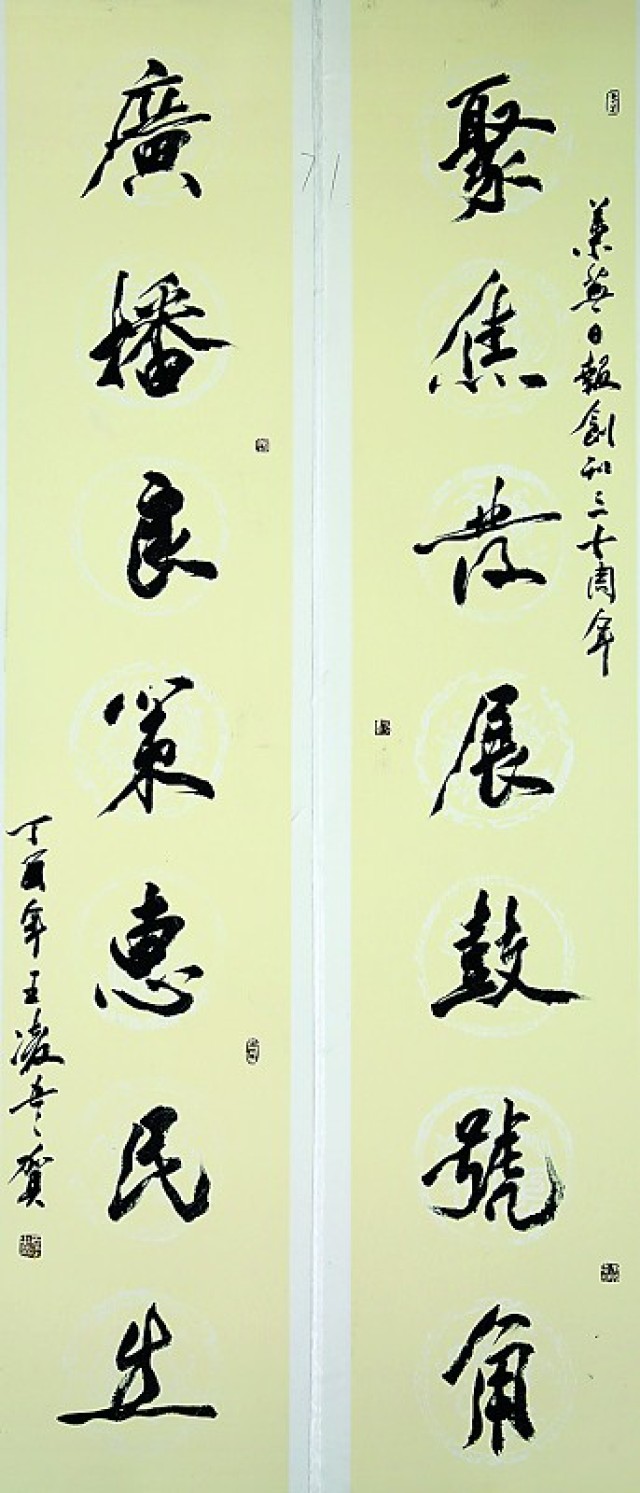 莱蕪日報創刊三十周年
聚焦發展鼓號角
廣播良策惠民生
丁亥年王凌賀